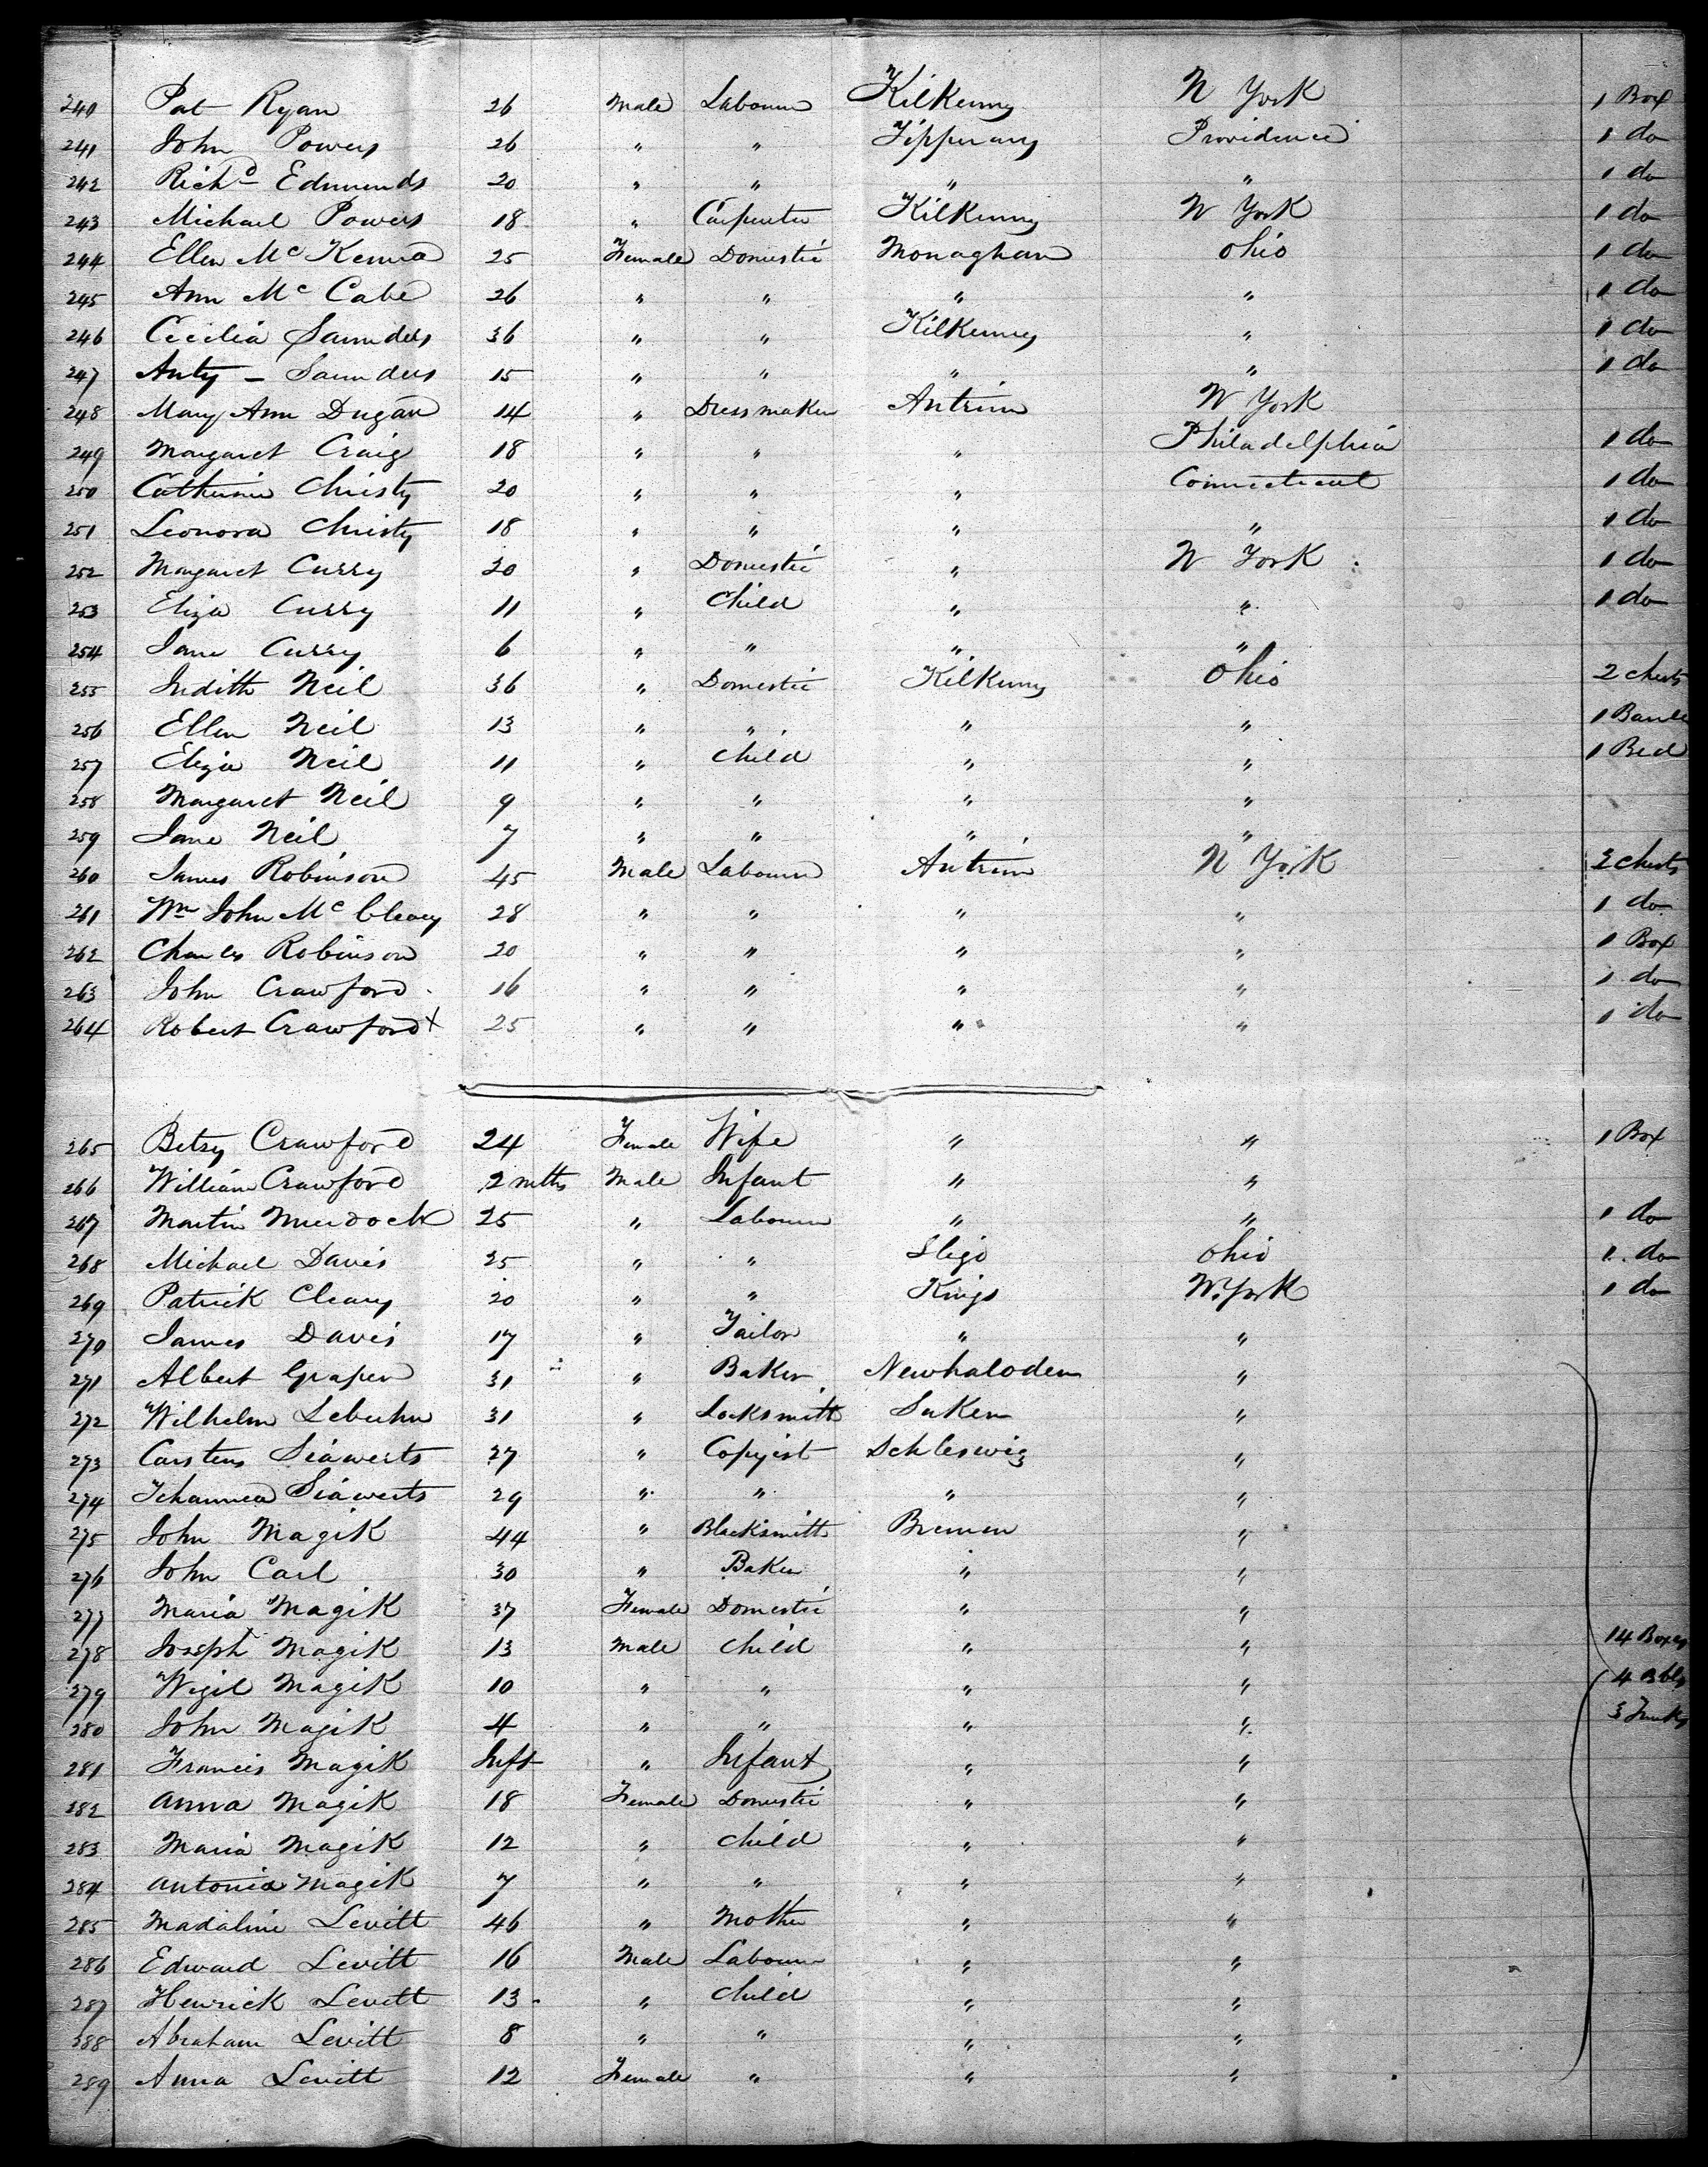 240 Pat Ryan 26 Male Labourer Kilkenny N York 1 Box
241 John Powers 26 " " Tipperary Providence 1 do
242 Richd Edmunds 20 " " " " 1 do
243 Michael Powers 18 " Carpenter Kilkenny N York 1 do
244 Ellen Mc Kenna 25 Female Domestic Monaghan Ohio 1 do
245 Ann Mc Cabe 26 " " " " 1 do
246 Cecilia Saunders 36 " " Kilkenny " 1 do
247 Anty - Saunders 15 " " " " 1 do
248 Mary Ann Dugan 14 " Dressmaker Antrim N York
249 Margaret Craig 18 " " " Philadelphia 1 do
250 Catherine Christy 20 " " " Connecticut 1 do
251 Leonora Christy 18 " " " " 1 do
252 Margaret Curry 30 " Domestic " N York 1 do
253 Eliza Curry 11 " Child " " 1 do
254 Jane Curry 6 " " " "
255 Judith Neil 36 " Domestic Kilkenny Ohio 2 chests
256 Ellen Neil 13 " " " " 1
257 Eliza Neil 11 " Child " " 1 Bed
258 Margaret Neil 9 " " " "
259 Jane Neil 7 " " " "
260 James Robinson 45 Male Labourer Antrim N York 2 chests
261 Wm John Mc Cleary 28 " " " " 1 do
262 Charles Robinson 20 " " " " 1 Box
263 John Crawford 16 " " " " 1 do
264 Robert Crawford X 25 " " " " 1 do
265 Betsy Crawford 24 Female Wife " " 1 Box
266 William Crawford 2 mths Male Infant " "
267 Martin Murdock 25 " Labourer " " 1 do
268 Michael Davis 25 " " Sligo Ohio 1 do
269 Patrick Cleary 20 " " Kings N. York 1 do
270 James Davis 17 " Tailor " "
271 Albert Graper 31 " Baker Newhaloden "
272 Wilhelm Lebuhn 31 " Locksmith Saken "
273 Carstens Siawerts 27 " Copyist Schleswig "
274 Johannea Siawerts 29 " " " "
275 John Magik 44 " Blacksmith Bremen "
276 John Carl 30 " Baker " "
277 Maria Magik 37 Female Domestic " "
278 Joseph Magik 13 Male Child " " 14 Boxes
279 Wigil Magik 10 " " " " 4 Bbls
280 John Magik 4 " " " " 3 Trunks
281 Francis Magik Inft " Infant " "
282 Anna Magik 18 Female Domestic " "
283 Maria Magik 12 " Child " "
284 Antonia Magik 7 " " " "
285 Madaline Levitt 46 " Mother " "
286 Edward Levitt 16 Male Labourer " "
287 Henrick Levitt 13 " Child " "
288 Abraham Levitt 8 " " " "
289 Anna Levitt 12 Female " " "